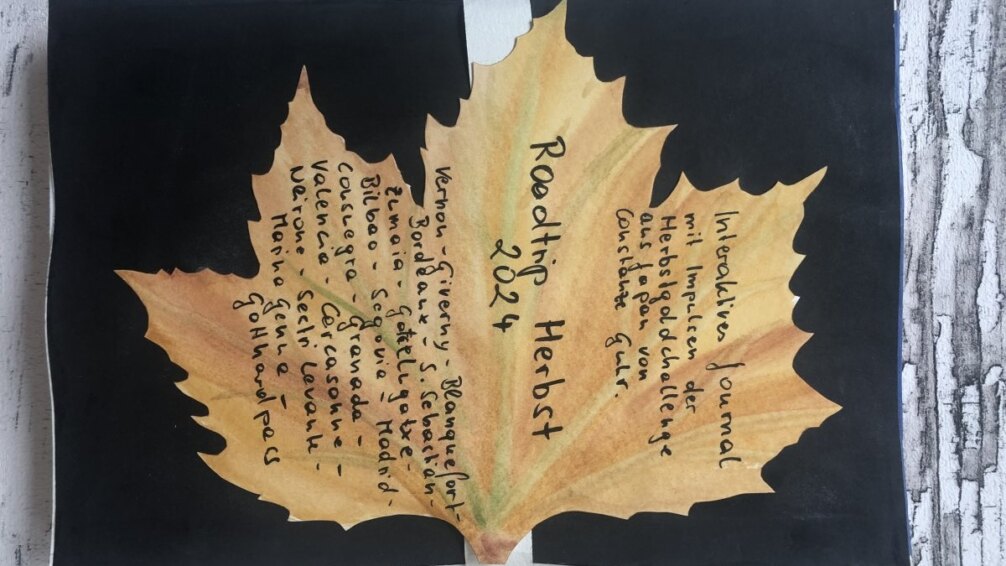 Interaktives Journal
mit Impulsen der
Herbstgoldchallenge
aus Japan von
Constanze Guhr.
Roadtrip Herbst
2024
Vernon - Giverny - Blanquefort -
Bordeaux - S. Sebastian -
Zumaia -
Bilbao - Segovia - Madrid -
Consuegra - Granada -
Valencia - Carcasonne -
Neirone - Sestri Levante -
Maina Genna -
Gotthardpass